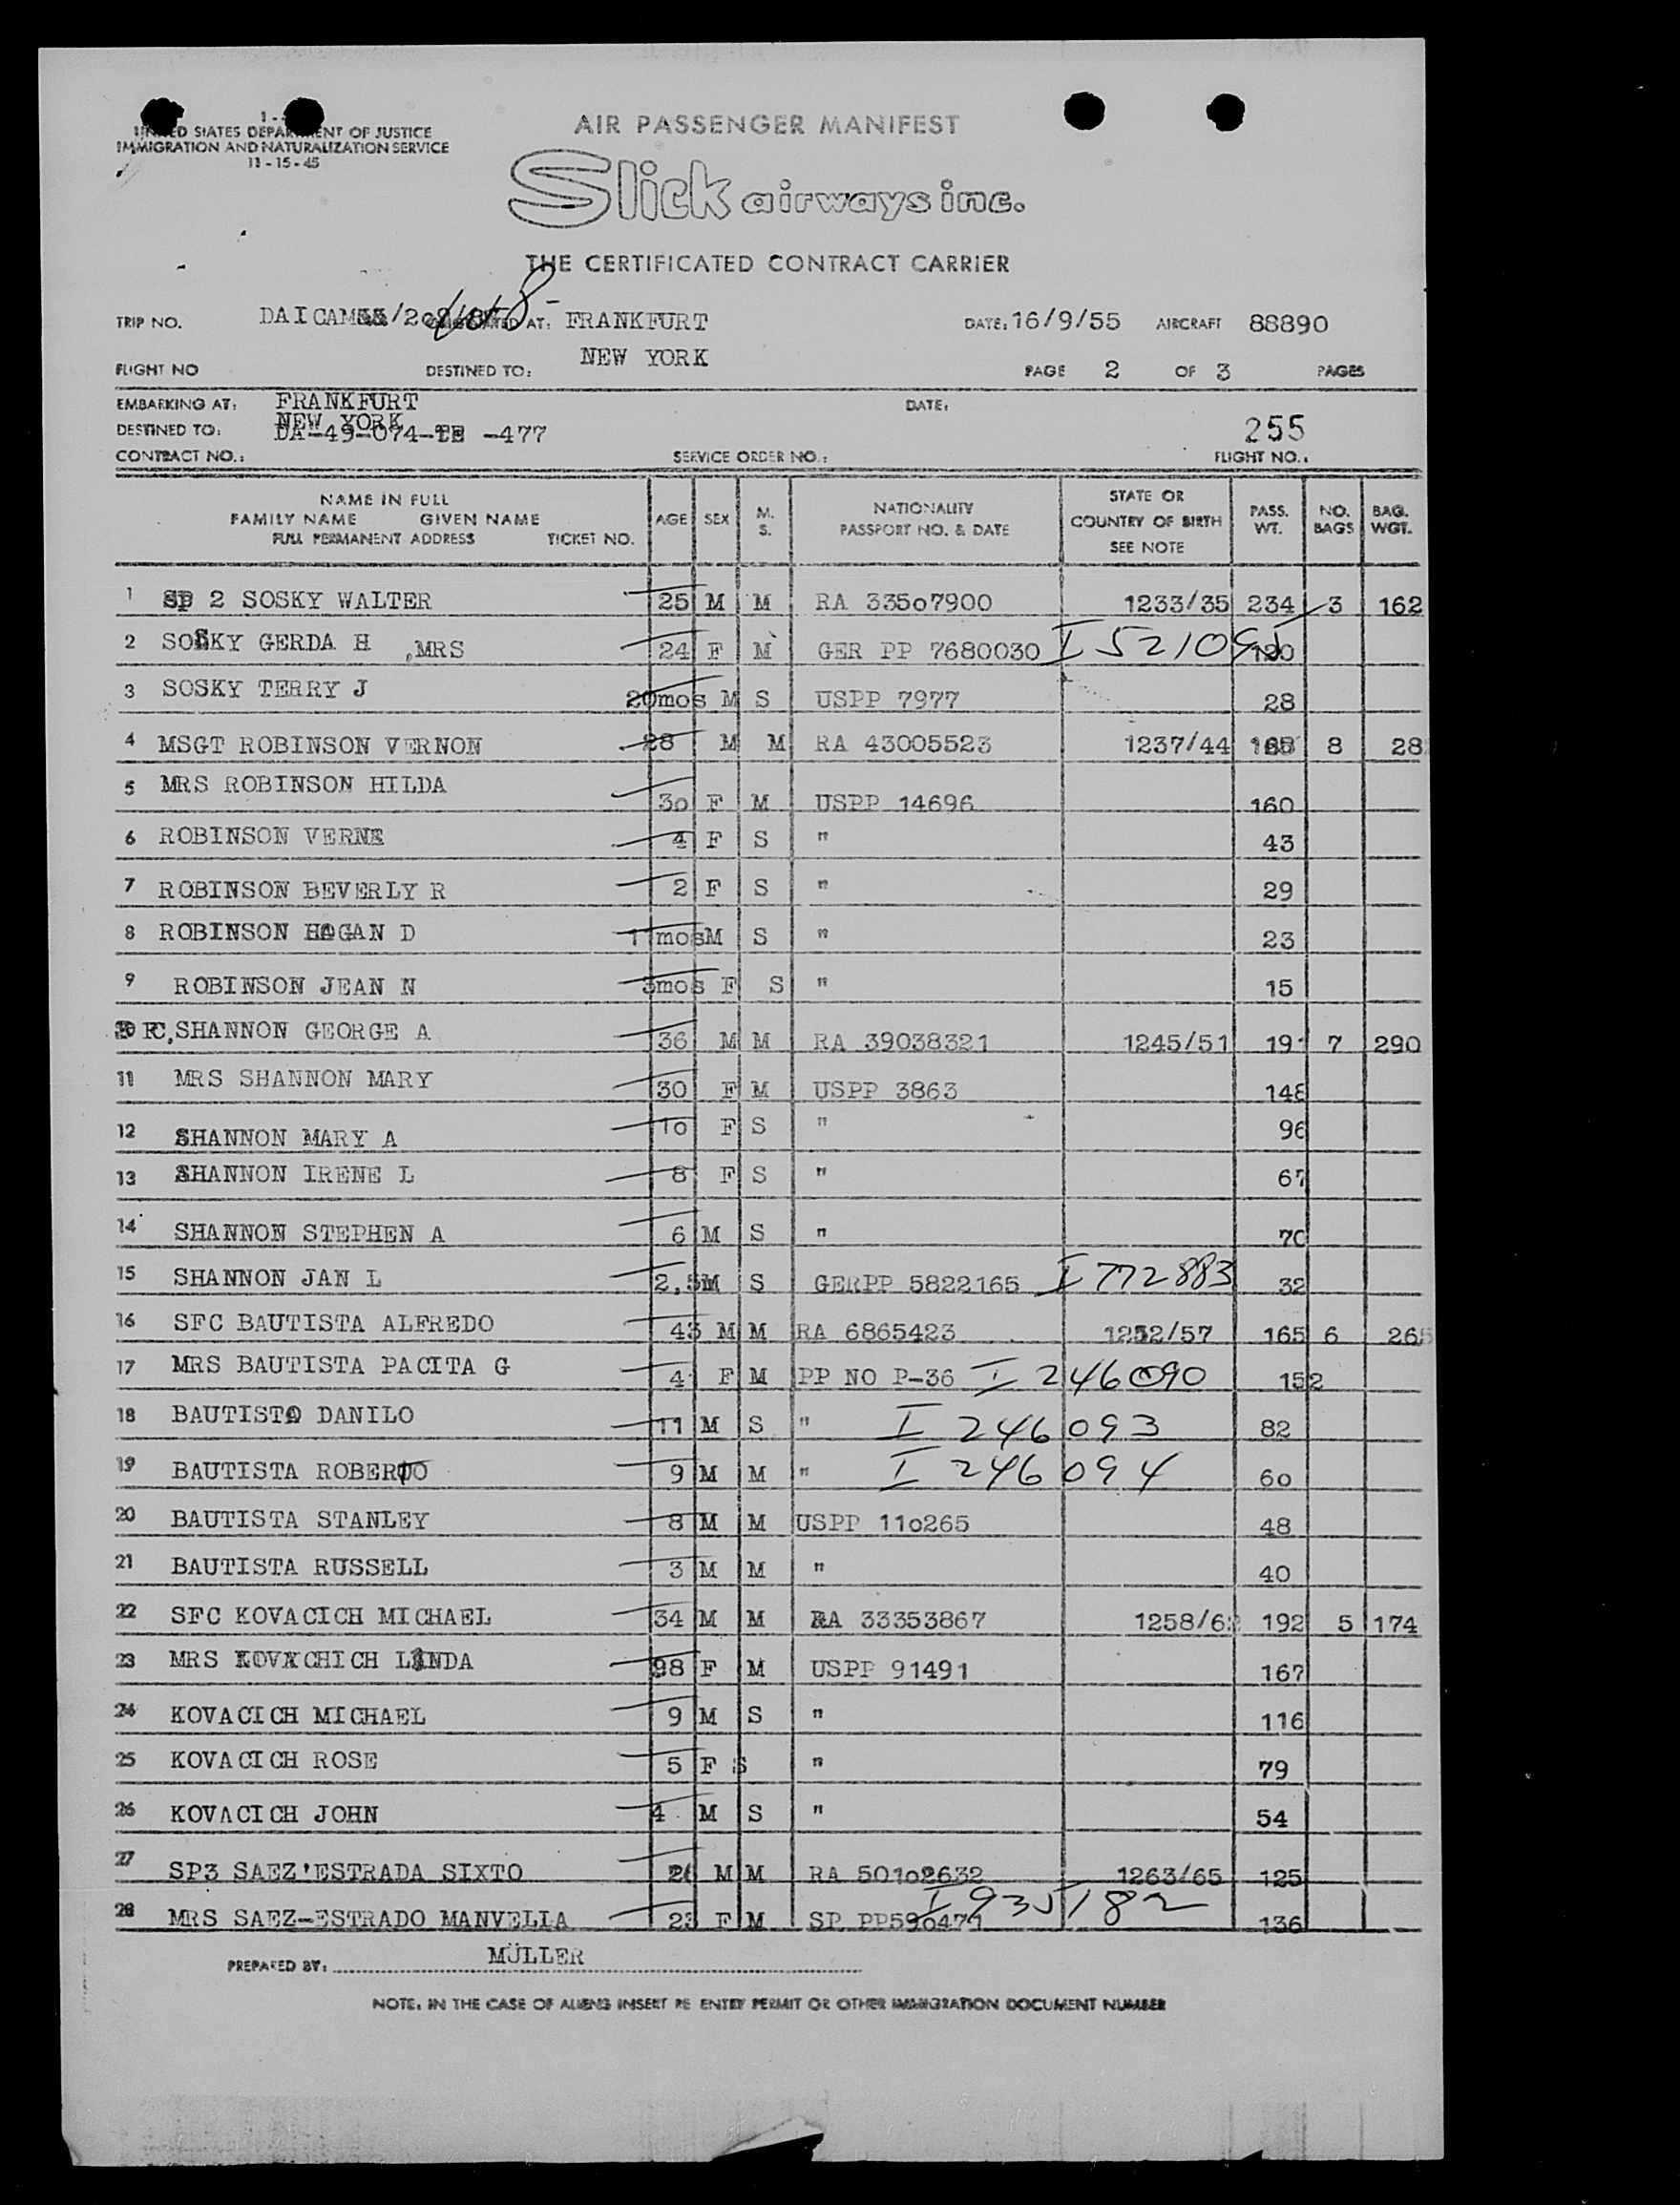 UNITED STATES DEPARTMENT OF JUSTICE
IMMIGRATION AND NATURALIZATION SERVICE
11-15-45
AIR PASSENGER MANIFEST
Slick airways inc.
THE CERTIFICATED CONTRACT CARRIER
TRIP NO. DAICAM AT: FRANKFURT DATE: 16/9/55 AIRCRAFT 88890
FLIGHT NO DESTINED TO: NEW YORK PAGE 2 OF 3 PAGES
EMBARKING AT: FRANKFURT DATE:
DESTINED TO: NEW YORK 255
CONTRACT NO.: DA-49-074- -477 SERVICE ORDER NO.: FLIGHT NO.:
NAME IN FULL
FAMILY NAME GIVEN NAME
FULL PERMANENT ADDRESS TICKET NO. AGE SEX M. S. NATIONALITY PASSPORT NO. & DATE STATE OR COUNTRY OF BIRTH SEE NOTE PASS. WT. NO. BAGS BAG. WGT.
1 SP 2 SOSKY WALTER 25 M M RA 335o7900 1233/35 234 3 162
2 SOSKY GERDA H ,MRS 24 F M GER PP 7680030 I 521095
3 SOSKY TERRY J 20mos M S USPP 7977 28
4 MSGT ROBINSON VERNON 28 M M RA 43005523 1237/44 8 28
5 MRS ROBINSON HILDA 3o F M USPP 14696 160
6 ROBINSON VERNE 4 F S " 43
7 ROBINSON BEVERLY R 2 F S " 29
8 ROBINSON HAGAN D 11mos M S " 23
9 ROBINSON JEAN N 3mos F S " 15
SHANNON GEORGE A 36 M M RA 39038321 1245/51 191 7 290
11 MRS SHANNON MARY 30 F M USPP 3863 148
12 SHANNON MARY A 1o F S " 96
13 SHANNON IRENE L 8 F S " 67
14 SHANNON STEPHEN A 6 M S " 70
15 SHANNON JAN L 2,5 M S GERPP 5822165 I 772883 32
16 SFC BAUTISTA ALFREDO 43 M M RA 6865423 1252/57 165 6 265
17 MRS BAUTISTA PACITA G 4 F M PP NO P-36 I 246090 152
18 BAUTISTA DANILO 11 M S " I 246093 82
19 BAUTISTA ROBERTO 9 M M " I 246094 6o
20 BAUTISTA STANLEY 8 M M USPP 11o265 48
21 BAUTISTA RUSSELL 3 M M " 40
22 SFC KOVACICH MICHAEL 34 M M RA 33353867 1258/62 192 5 174
23 MRS KOVACHICH LINDA 98 F M USPP 91491 167
24 KOVACICH MICHAEL 9 M S " 116
25 KOVACICH ROSE 5 F S " 79
26 KOVACICH JOHN 4 M S " 54
27 SP3 SAEZ'ESTRADA SIXTO M M RA 501o2632 1263/65 125
28 MRS SAEZ-ESTRADO MANVELIA 23 F M SP PP590471 I 935182 136
PREPARED BY: MÜLLER
NOTE: IN THE CASE OF ALIENS INSERT RE ENTRY PERMIT OR OTHER IMMIGRATION DOCUMENT NUMBER